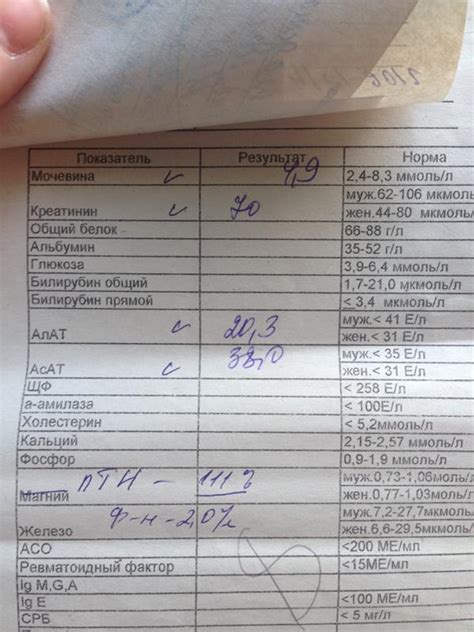 Показатель Результат Норма
Мочевина 4,9 2,4-8,3 ммоль/л
муж.62-106 мкмоль/л
Креатинин 70 жен.44-80 мкмоль/л
Общий белок 66-88 г/л
Альбумин 35-52 г/л
Глюкоза 3,9-6,4 ммоль/л
Билирубин общий 1,7-21,0 мкмоль/л
Билирубин прямой < 3,4 мкмоль/л
муж.< 41 Е/л
АлАТ 20,3 жен.< 31 Е/л
муж.< 35 Е/л
АсАТ жен.< 31 Е/л
ЩФ < 258 Е/л
а-амилаза < 100Е/л
Холестерин < 5,2ммоль/л
Кальций 2,15-2,57 ммоль/л
Фосфор 0,9-1,9 ммоль/л
муж.0,73-1,06моль/л
Магний ПТН - 111% жен.0,77-1,03моль/л
муж.7,2-27,7мкмоль/л
Железо Ф-н-2,0г/л жен.6,6-29,5мкмоль/л
АСО <200 МЕ/мл
Ревматоидный фактор <15МЕ/мл
Ig M,G,A
Ig E <100 МЕ/мл
СРБ < 5 мг/л